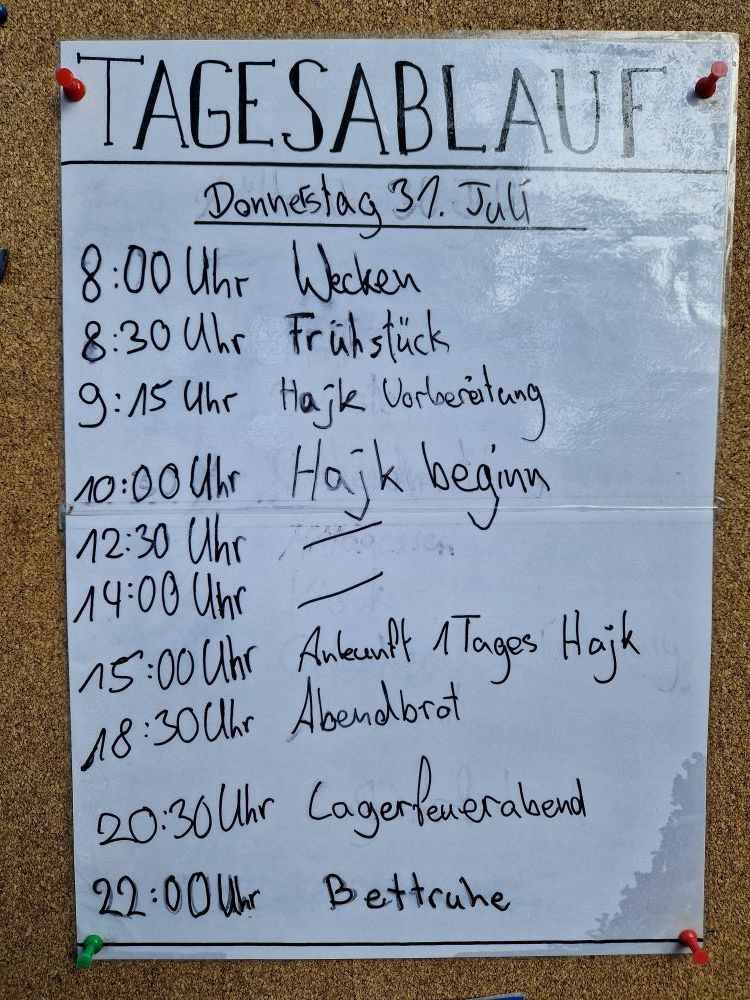 TAGESABLAUF
Donnerstag 31. Juli
8:00 Uhr Wecken
8:30 Uhr Frühstück
9:15 Uhr Hajk Vorbereitung
10:00 Uhr Hajk beginn
12:30 Uhr —
14:00 Uhr —
15:00 Uhr Ankunft 1 Tages Hajk
18:30 Uhr Abendbrot
20:30 Uhr Lagerfeuerabend
22:00 Uhr Bettruhe